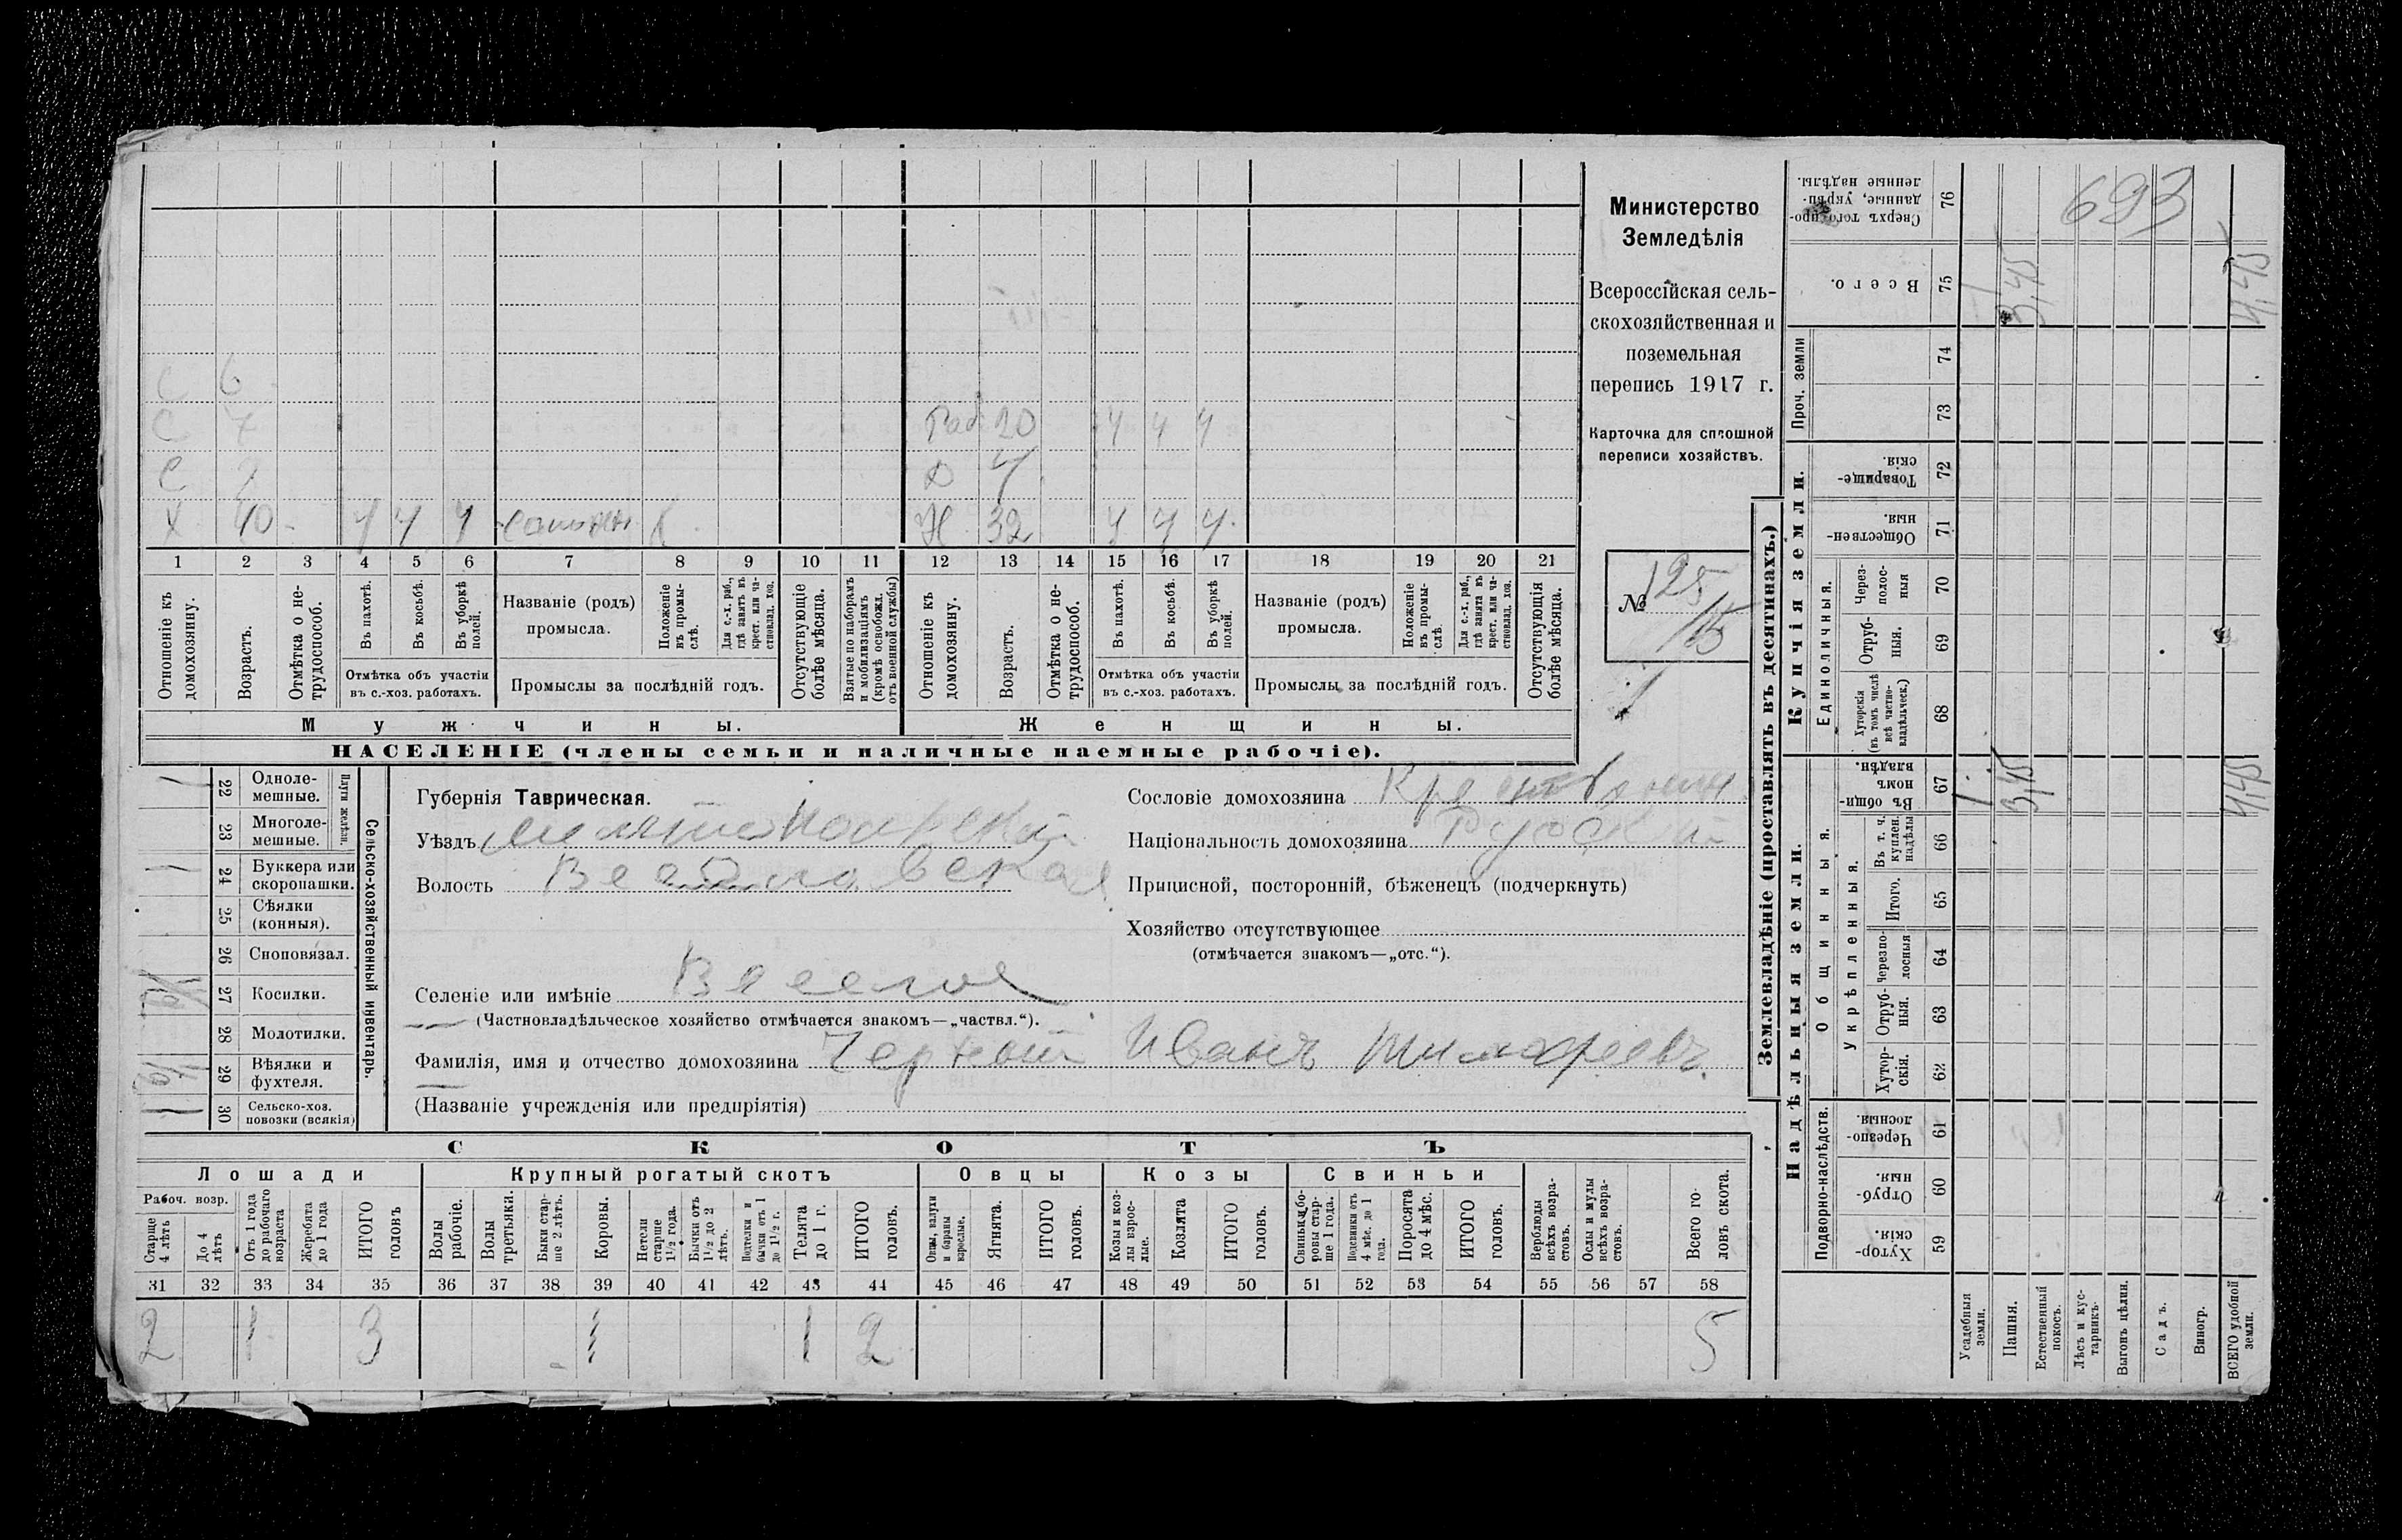 Министерство
Земледѣлія
Всероссійская сель-
скохозяйственная и
поземельная
перепись 1917 г.
Карточка для сплошной
переписи хозяйствъ.
№ 125/15
693
С 6
С 7 Раб 20 4 4 4
С Д
Х 40 4 4 4 Х Ж 32 4 4 4
1 2 3 4 5 6 7 8 9 10 11 12 13 14 15 16 17 18 19 20 21
Отношеніе къ домохозяину.
Возрастъ.
Отмѣтка о не-
трудоспособ.
Въ пахотѣ.
Въ косьбѣ.
Въ уборкѣ
полей.
Отмѣтка объ участіи
въ с.-хоз. работахъ.
Названіе (родъ)
промысла.
Положеніе
въ промы-
слѣ.
Для с.-х. раб.,
гдѣ занятъ въ
крест. или ча-
стновлад. хоз.
Промыслы за послѣдній годъ.
Отсутствующіе
болѣе мѣсяца.
Взятые по наборамъ
и мобилизаціямъ
(кромѣ освобожд.
отъ военной службы)
Отношеніе къ
домохозяину.
Возрастъ.
Отмѣтка о не-
трудоспособ.
Въ пахотѣ.
Въ косьбѣ.
Въ уборкѣ
полей.
Отмѣтка объ участіи
въ с.-хоз. работахъ.
Названіе (родъ)
промысла.
Положеніе
въ промы-
слѣ.
Для с.-х. раб.,
гдѣ занята въ
крест. или ча-
стновлад. хоз.
Промыслы за послѣдній годъ.
Отсутствующія
болѣе мѣсяца.
Мужчины.
Женщины.
НАСЕЛЕНІЕ (члены семьи и наличные наемные рабочіе).
Сельско-хозяйственный инвентарь.
Плуги желѣзн.
1 22 Одноле-
мешные.
23 Многоле-
мешные.
1 24 Буккера или
скоропашки.
25 Сѣялки
(конныя).
26 Сноповязал.
27 Косилки.
28 Молотилки.
29 Вѣялки и
фухтеля.
1 30 Сельско-хоз.
повозки (всякія)
Губернія Таврическая.
Уѣздъ Мелитопольскій
Волость Веселовская
Селеніе или имѣніе Веселое
(Частновладѣльческое хозяйство отмѣчается знакомъ—„частвл.“).
Фамилія, имя и отчество домохозяина Черный Иванъ Тимофеевъ.
(Названіе учрежденія или предпріятія)
Сословіе домохозяина Крестьянин
Національность домохозяина Руский
Приписной, посторонній, бѣженецъ (подчеркнуть)
Хозяйство отсутствующее
(отмѣчается знакомъ—„отс.“).
СКОТЪ
Лошади
Крупный рогатый скотъ
Овцы
Козы
Свиньи
Рабоч. возр.
Старше
4 лѣтъ
До 4
лѣтъ
Отъ 1 года
до рабочаго
возраста
Жеребята
до 1 года
ИТОГО
головъ
Волы
рабочіе.
Волы
третьяки.
Быки стар-
ше 2 лѣтъ.
Коровы.
Нетели
старше
1½ года.
Бычки отъ
1½ до 2
лѣтъ.
Подтелки и
бычки отъ 1
до 1½ г.
Телята
до 1 г.
ИТОГО
головъ.
Овцы, валухи
и бараны
взрослые.
Ягнята.
ИТОГО
головъ.
Козы и коз-
лы взрос-
лые.
Козлята
ИТОГО
головъ.
Свиньи и бо-
ровы стар-
ше 1 года.
Подсвинки отъ
4 мѣс. до 1
года.
Поросята
до 4 мѣс.
ИТОГО
головъ.
Верблюды
всѣхъ возра-
стовъ.
Ослы и мулы
всѣхъ возра-
стовъ.
Всего го-
ловъ скота.
31 32 33 34 35 36 37 38 39 40 41 42 43 44 45 46 47 48 49 50 51 52 53 54 55 56 57 58
2 1 3 1 1 2 5
Землевладѣніе (проставлять въ десятинахъ.)
Надѣльныя земли.
Купчія земли.
Проч. земли
Подворно-наслѣдств.
Общинныя.
Укрѣпленныя.
Единоличныя.
76 Сверхъ того про-
данные, укрѣп-
ленные надѣлы.
75 Всего. 1 3,45 4,45
74
73
72 Товарище-
скія.
71 Обществен-
ныя.
70 Через-
полос-
ныя
69 Отруб-
ныя.
68 Хуторскія
(въ томъ числѣ
всѣ частно-
владѣльческ.)
67 Въ общин-
номъ
владѣн. 1 3,45 4,45
66 Въ т. ч.
куплен.
надѣлы
65 Итого.
64 Черезпо-
лосныя
63 Отруб-
ныя.
62 Хутор-
скія.
61 Черезпо-
лосныя.
60 Отруб-
ныя.
59 Хутор-
скія.
Усадебныя
земли.
Пашня.
Естественный
покосъ.
Лѣсъ и кус-
тарникъ.
Выгонъ цѣлин.
Садъ.
Виногр.
ВСЕГО удобной
земли.